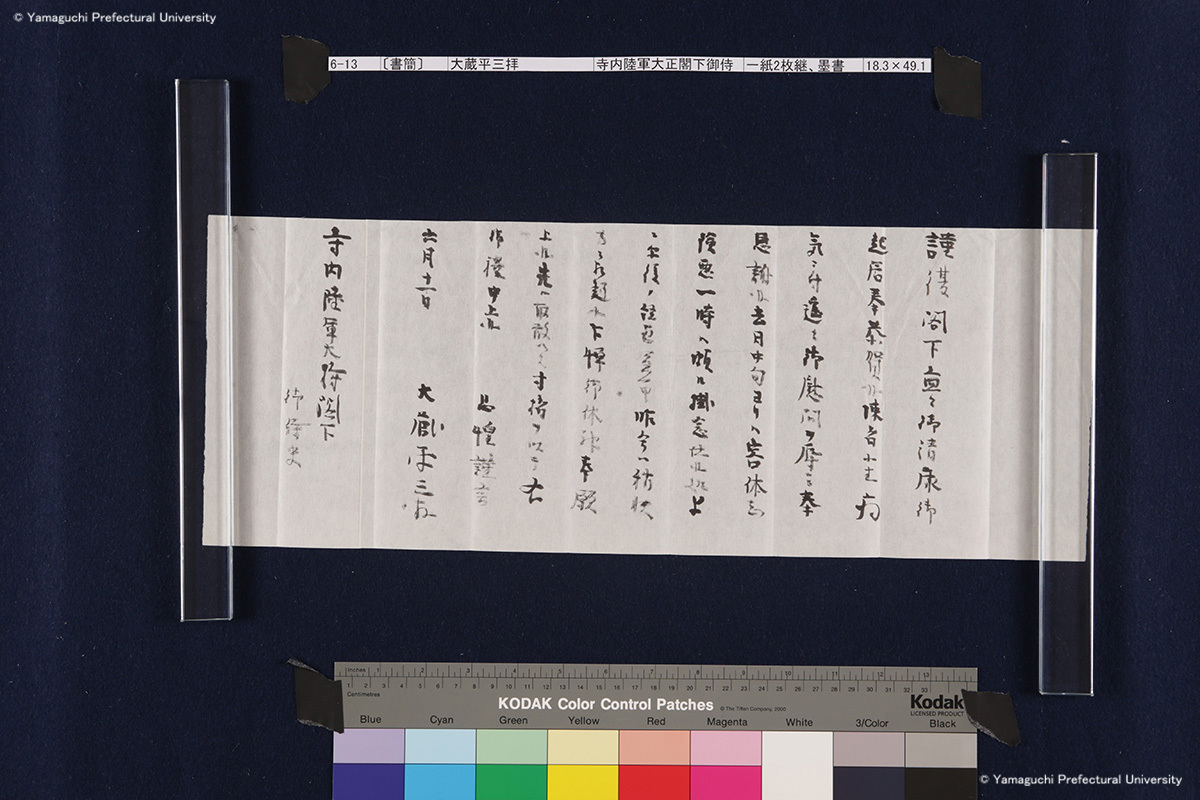 © Yamaguchi Prefectural University
6-13 〔書簡〕 大蔵平三拝 寺内陸軍大正閣下御侍 一紙2枚継、墨書 18.3×49.1
謹復閣下益々御清康御
起居奉恭賀候陳者小生病
気ニ付遠々御慰問ヲ辱フ奉
恩謝候去月中旬ヨリハ容体
険悪一時ハ頗ル掛念仕候処
其後ノ経過 昨今ハ
下憚御休神奉願
上候先ハ不取敢以寸楮ヲ以テ右
御礼申上候 恐惶謹言
六月十一日 大蔵平三拝
寺内陸軍大将閣下
御侍史
Inches 1 2 3 4 5 6 7 8 9 10 11 12 13
Centimetres 1 2 3 4 5 6 7 8 9 10 11 12 13 14 15 16 17 18 19 20 21 22 23 24 25 26 27 28 29 30 31 32 33
KODAK Color Control Patches © The Tiffen Company, 2000
Kodak
LICENSED PRODUCT
Blue Cyan Green Yellow Red Magenta White 3/Color Black
© Yamaguchi Prefectural University